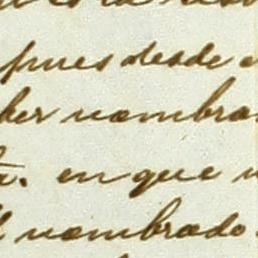 pues desde
ber nombra
en que
nombrado